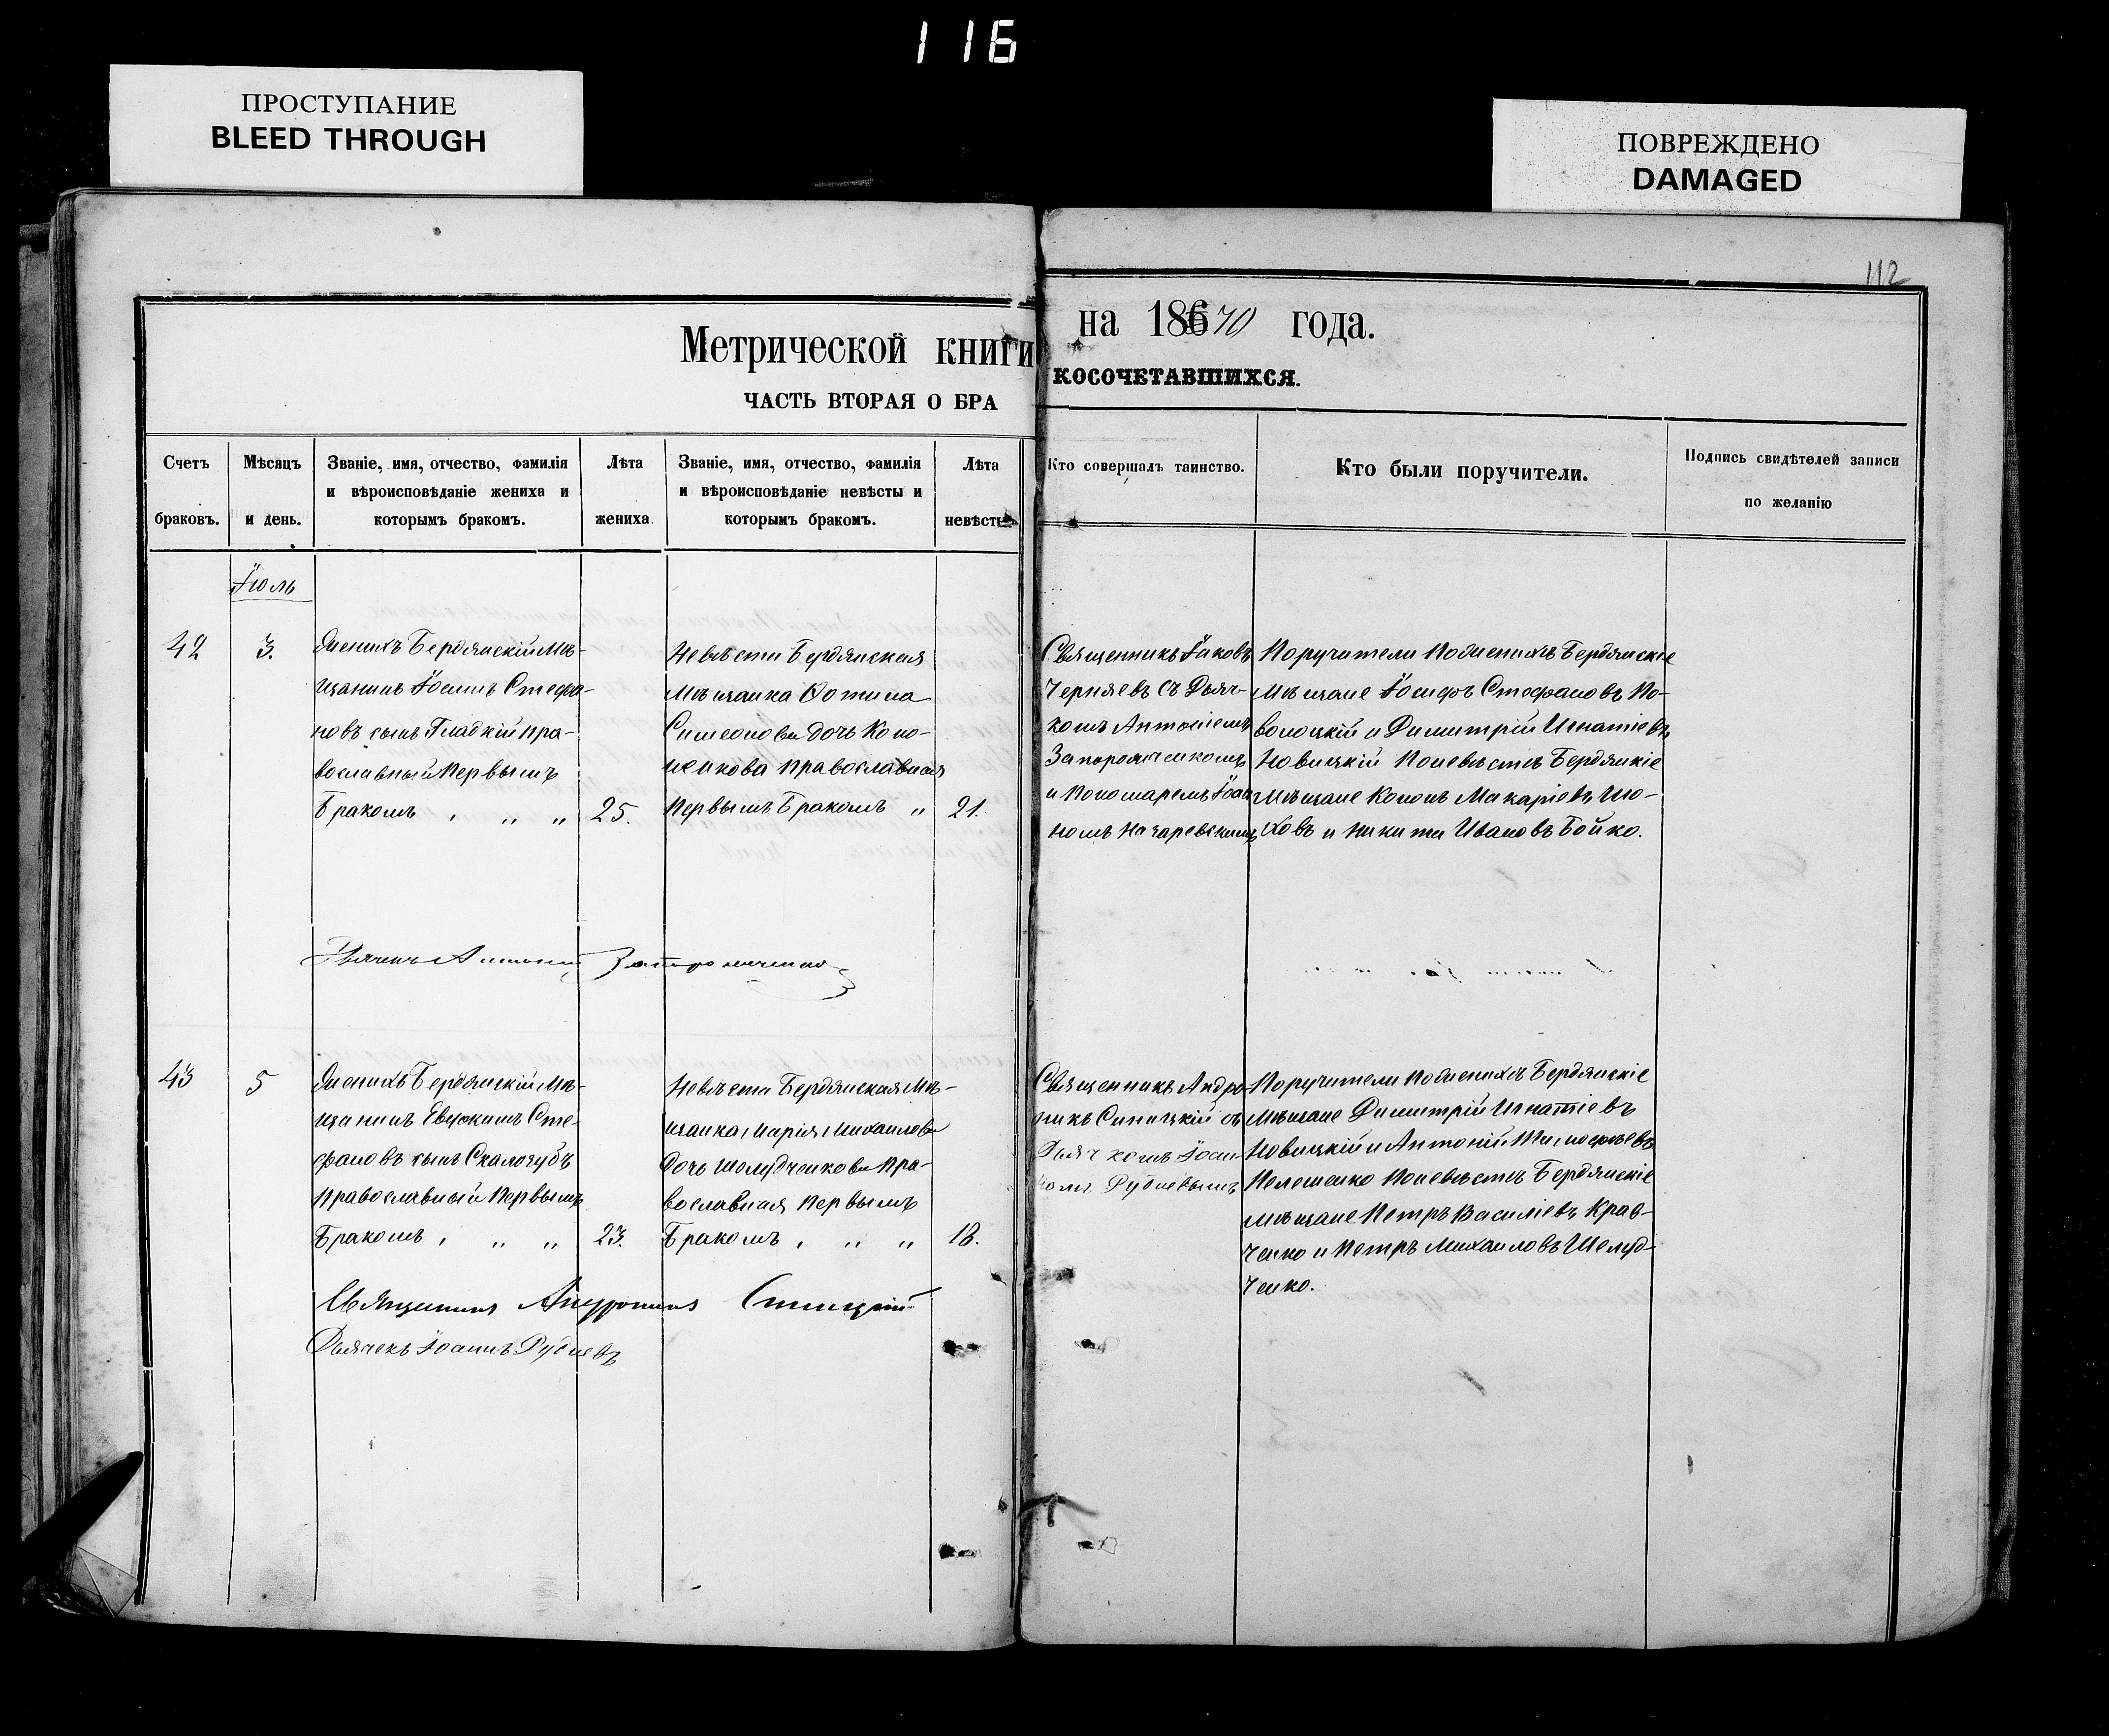 116
ПРОСТУПАНИЕ
BLEED THROUGH
ПОВРЕЖДЕНО
DAMAGED
112
Метрической книги на 18670 года.
ЧАСТЬ ВТОРАЯ О БРАКОСОЧЕТАВШИХСЯ.
Счетъ браковъ.
Мѣсяцъ и день.
Званіе, имя, отчество, фамилія
и вѣроисповѣданіе жениха и
которымъ бракомъ.
Лѣта
жениха
Званіе, имя, отчество, фамилія
и вѣроисповѣданіе невѣсты и
которымъ бракомъ.
Лѣта
невѣсты
Кто совершалъ таинство.
Кто были поручители.
Подпись свидѣтелей записи
по желанію
Іюль
42
3.
Женихъ Бердянскій Мѣ-
щанинъ Іоаннъ Стефа-
новъ сынъ Гладкій пра-
вославный Первымъ
Бракомъ , „ „
25.
Невѣста Бердянская
Мѣщанка Фотина
Симеонова дочь Коно-
ненкова православная
Первымъ Бракомъ „
21.
Священникъ Іаковъ
Черняевъ съ Дьяч-
комъ Антоніемъ
Запорожченкомъ
и Пономаремъ Іоан
номъ
Поручители Пожениху Бердянскіе
Мѣщане Іосифъ Стефановъ По-
волоцкій и Димитрій Игнатіевъ
Новицкій Поневѣстѣ Бердянкіе
Мѣщане Кононъ Макаріевъ Шо-
ховъ и Никита Ивановъ Бойко.
Дьячекъ Антоній Запорожченко
43
5
Женихъ Бердянскій Мѣ-
щанинъ Евфимъ Сте-
фановъ сынъ Скалозубъ
Православный Первымъ
Бракомъ , „ „
23.
Невѣста Бердянская Мѣ-
щанка Марія Михаилова
дочь Шолудченкова Пра-
вославная Первымъ
Бракомъ , „ „
18.
Священникъ Андро
никъ Синицкій съ
Дьячкомъ Іоан
номъ Рудневымъ
Поручители Пожениху Бердянскіе
Мѣщане Димитрій Игнатіевъ
Новицкій и Антоній Тимофѣевъ
Пелешенко Поневѣстѣ Бердянскіе
Мѣщане Петръ Василіевъ Крав-
ченко и Петръ Михаиловъ Шелуд-
ченко.
Священникъ Андроникъ Синицкій
Дьячекъ Іоаннъ Рудневъ